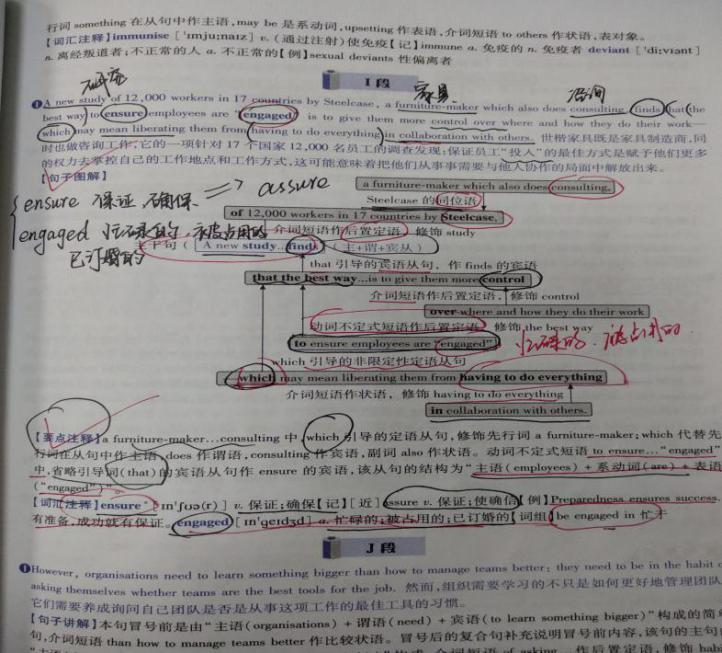 行词 something 在从句中作主语,may be 是系动词,upsetting 作表语,介词短语 to others 作状语,表对象。
【词汇注释】immunise [ˈɪmjuːnaɪz] v. (通过注射)使免疫【记】immune a. 免疫的 n. 免疫者 deviant [ˈdiːvɪənt]
n. 离经叛道者;不正常的人 a. 不正常的【例】sexual deviants 性偏离者
I 段
研究
家具
咨询
❶A new study of 12,000 workers in 17 countries by Steelcase, a furniture-maker which also does consulting, finds that the
best way to ensure employees are "engaged" is to give them more control over where and how they do their work—
which may mean liberating them from having to do everything in collaboration with others. 世楷家具既是家具制造商,同
时也做咨询工作,它的一项针对 17 个国家 12,000 名员工的调查发现:保证员工"投入"的最佳方式是赋予他们更多
的权力去掌控自己的工作地点和工作方式,这可能意味着把他们从事事需要与他人协作的局面中解放出来。
【句子图解】
ensure 保证,确保 => assure
engaged 忙碌的,被占用的
已订婚的
a furniture-maker which also does consulting,
Steelcase 的同位语
of 12,000 workers in 17 countries by Steelcase,
介词短语作后置定语,修饰 study
主干句(A new study…finds)(主+谓+宾从)
that 引导的宾语从句,作 finds 的宾语
that the best way…is to give them more control
介词短语作后置定语,修饰 control
over where and how they do their work
动词不定式短语作后置定语,修饰 the best way
to ensure employees are "engaged"
忙碌的,被占用的
which 引导的非限定性定语从句
which may mean liberating them from having to do everything
介词短语作状语,修饰 having to do everything
in collaboration with others.
【要点注释】a furniture-maker…consulting 中,which 引导的定语从句,修饰先行词 a furniture-maker; which 代替先
行词在从句中作主语,does 作谓语,consulting 作宾语,副词 also 作状语。动词不定式短语 to ensure…"engaged"
中,省略引导词(that)的宾语从句作 ensure 的宾语,该从句的结构为"主语(employees)+系动词(are)+表语
("engaged")"。
【词汇注释】ensure [ɪnˈʃʊə(r)] v. 保证;确保【记】[近] assure v. 保证;使确信【例】Preparedness ensures success.
有准备,成功就有保证。engaged [ɪnˈɡeɪdʒd] a. 忙碌的;被占用的;已订婚的【词组】be engaged in 忙于
J 段
❶However, organisations need to learn something bigger than how to manage teams better: they need to be in the habit o
asking themselves whether teams are the best tools for the job. 然而,组织需要学习的不只是如何更好地管理团队
它们需要养成询问自己团队是否是从事这项工作的最佳工具的习惯。
【句子讲解】本句冒号前是由"主语(organisations)+谓语(need)+宾语(to learn something bigger)"构成的简单
句,介词短语 than how to manage teams better 作比较状语。冒号后的复合句补充说明冒号前内容,该句的主句
介词短语 of asking… 作后置定语,修饰 habi